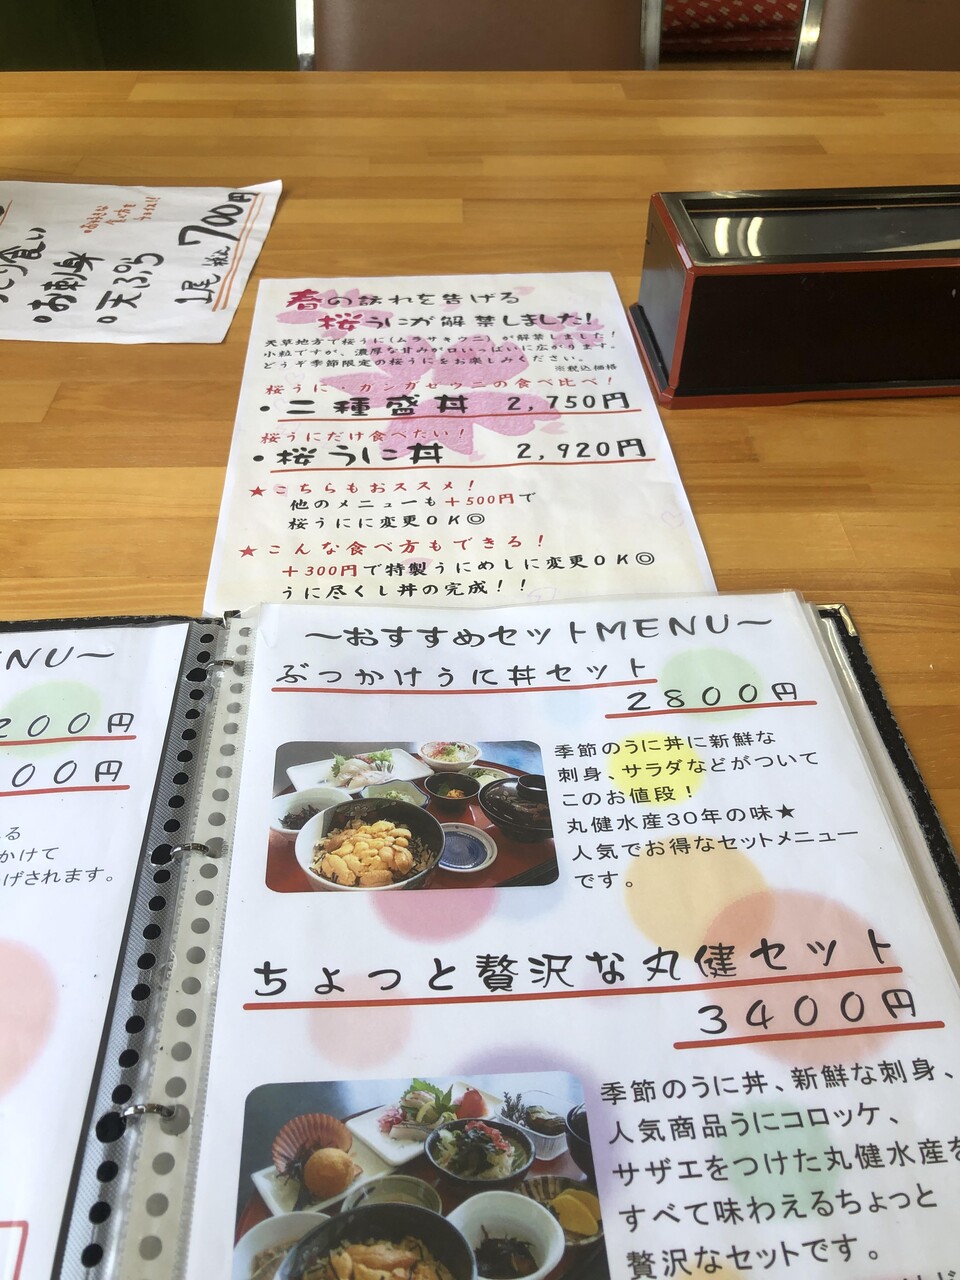 お刺身
・天ぷら
1尾 税込 700円
春の訪れを告げる
桜うにが解禁しました!
天草地方で桜うに(ムラサキウニ)が解禁しました!
小粒ですが、濃厚な甘みが口いっぱいに広がります。
どうぞ季節限定の桜うにをお楽しみください。
※税込価格
桜うに・ガンガゼウニの食べ比べ!
・二種盛丼 2,750円
桜うにだけ食べたい!
・桜うに丼 2,920円
★こちらもおススメ!
他のメニューも+500円で
桜うにに変更OK◎
★こんな食べ方もできる!
+300円で特製うにめしに変更OK◎
うに尽くし丼の完成!!
ENU～
200円
00円
る
かけて
げされます。
～おすすめセットMENU～
ぶっかけうに丼セット
2800円
季節のうに丼に新鮮な
刺身、サラダなどがついて
このお値段!
丸健水産30年の味★
人気でお得なセットメニュー
です。
ちょっと贅沢な丸健セット
3400円
季節のうに丼、新鮮な刺身、
人気商品うにコロッケ、
サザエをつけた丸健水産を
すべて味わえるちょっと
贅沢なセットです。